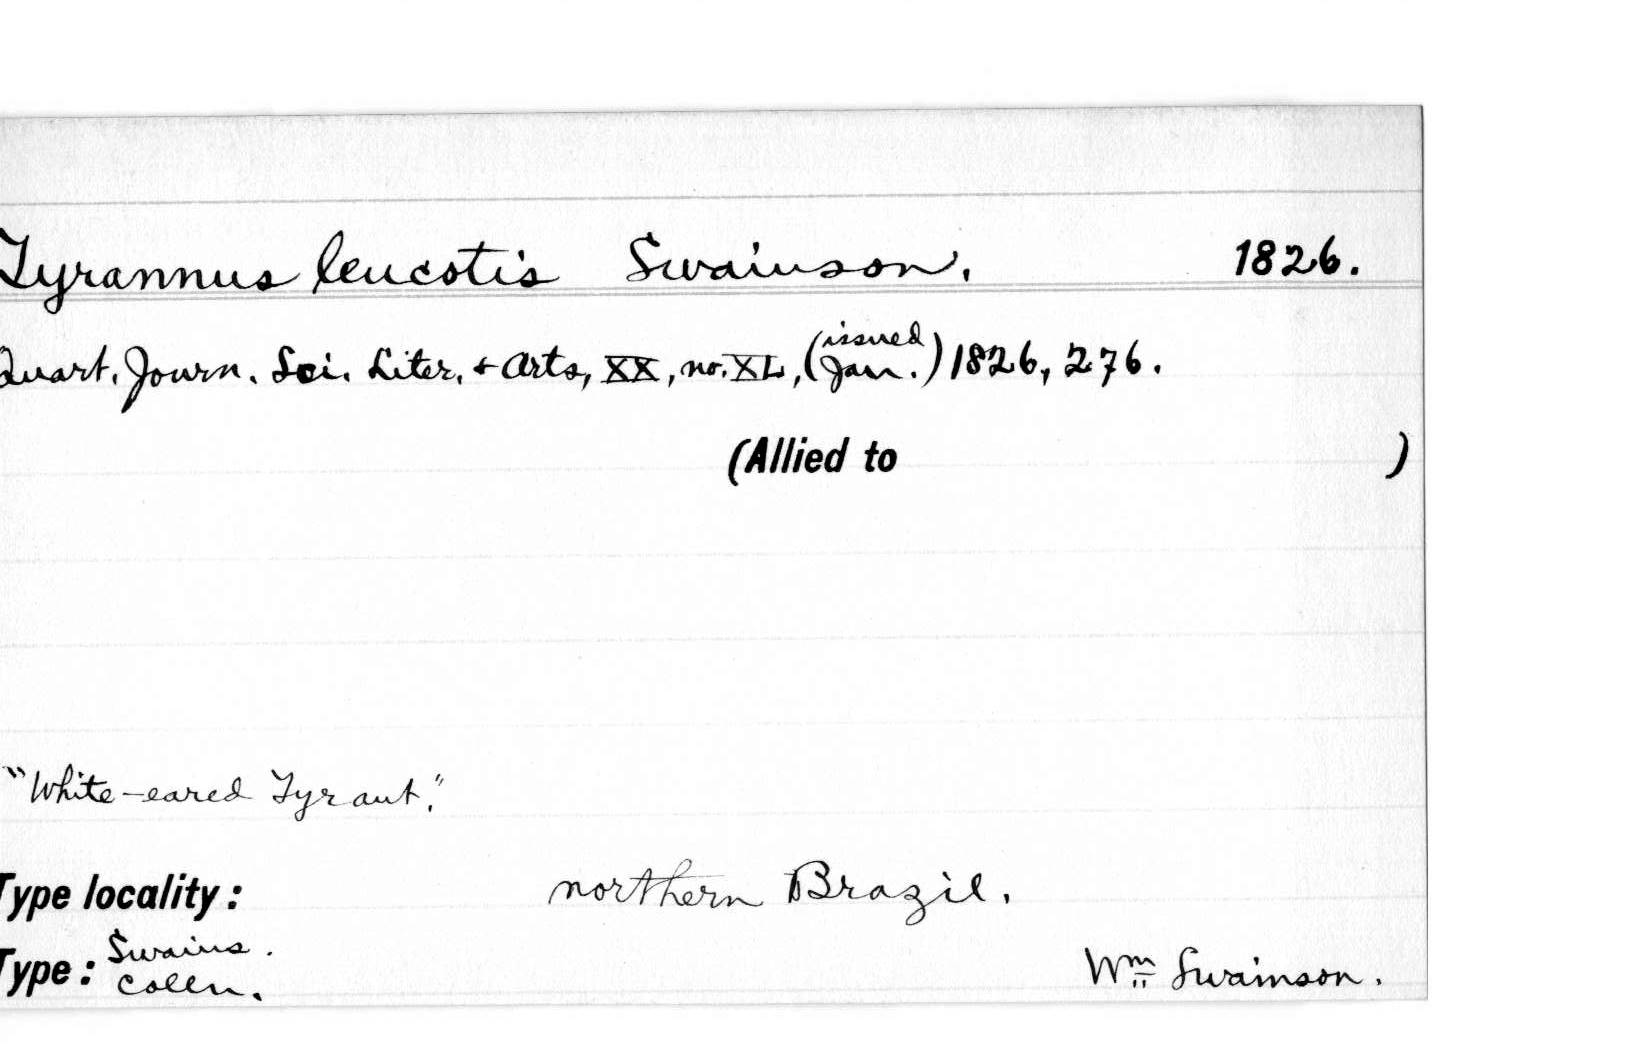 Tyrannus leucotis Swainson. 1826.
Quart. Journ. Sci. Liter. + Arts, XX, no. XL, (issued Jan.) 1826, 276.
(Allied to )
"White-eared Tyrant."
Type locality: northern Brazil.
Type: Swains. Colln. Wm Swainson.